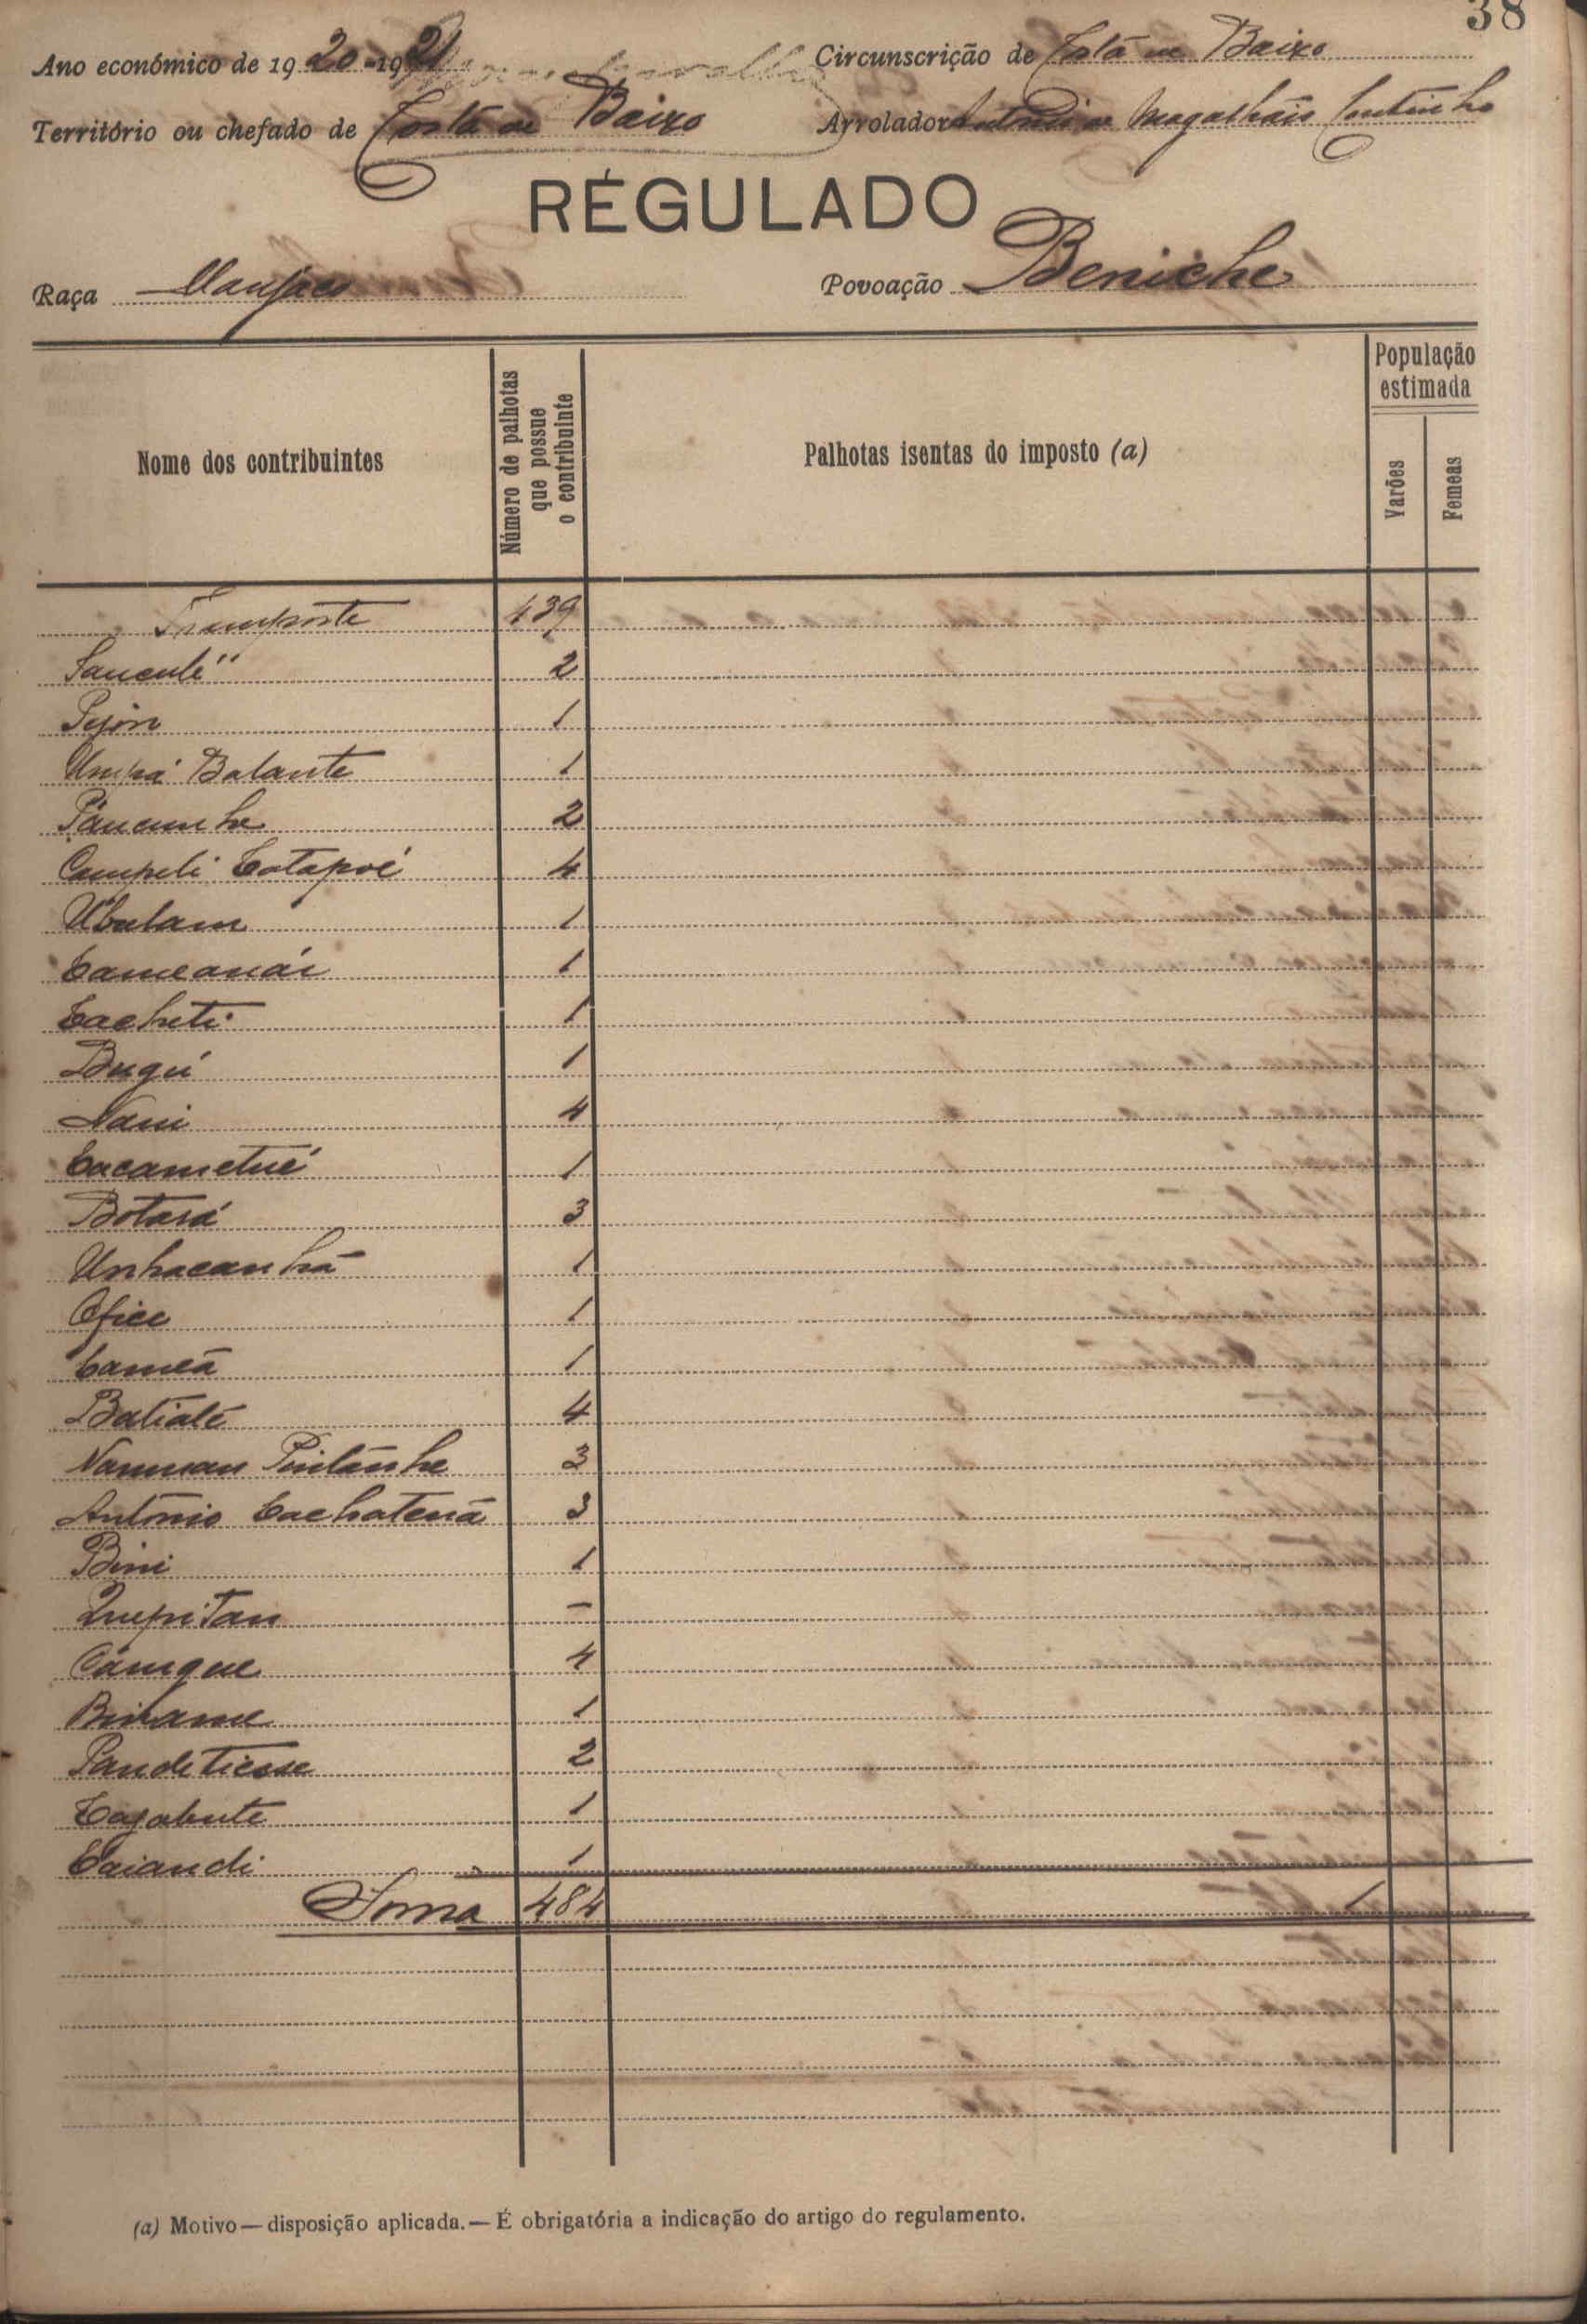 38
Ano económico de 1920-1921 Circunscrição de Costa de Baixo
Território ou chefado de Costa de Baixo Arrolador António de Magalhães Coutinho
RÉGULADO
Raça Manjaco Povoação Beniche
Nome dos contribuintes
Número de palhotas que possue o contribuinte
Palhotas isentas do imposto (a)
População estimada
Varões
Femeas
Transporte 439
Saucule" 2
Pejon 1
Umpá Balante 1
Páucunhe 2
Campeli Catapoé 4
Ubulam 1
Cameanái 1
Cacheti 1
Bugú 1
Nani 4
Cacametué 1
Botasá 3
Unhacanhã 1
Ofice 1
Cameã 1
Batialé 4
Namuan Pintanhe 3
António Cachatená 3
Bini 1
Quepitan —
Cauique 4
Birame 1
Pandetiesse 2
Cajabute 1
Caiandi 1
Soma 484 1
(a) Motivo — disposição aplicada. — É obrigatória a indicação do artigo do regulamento.